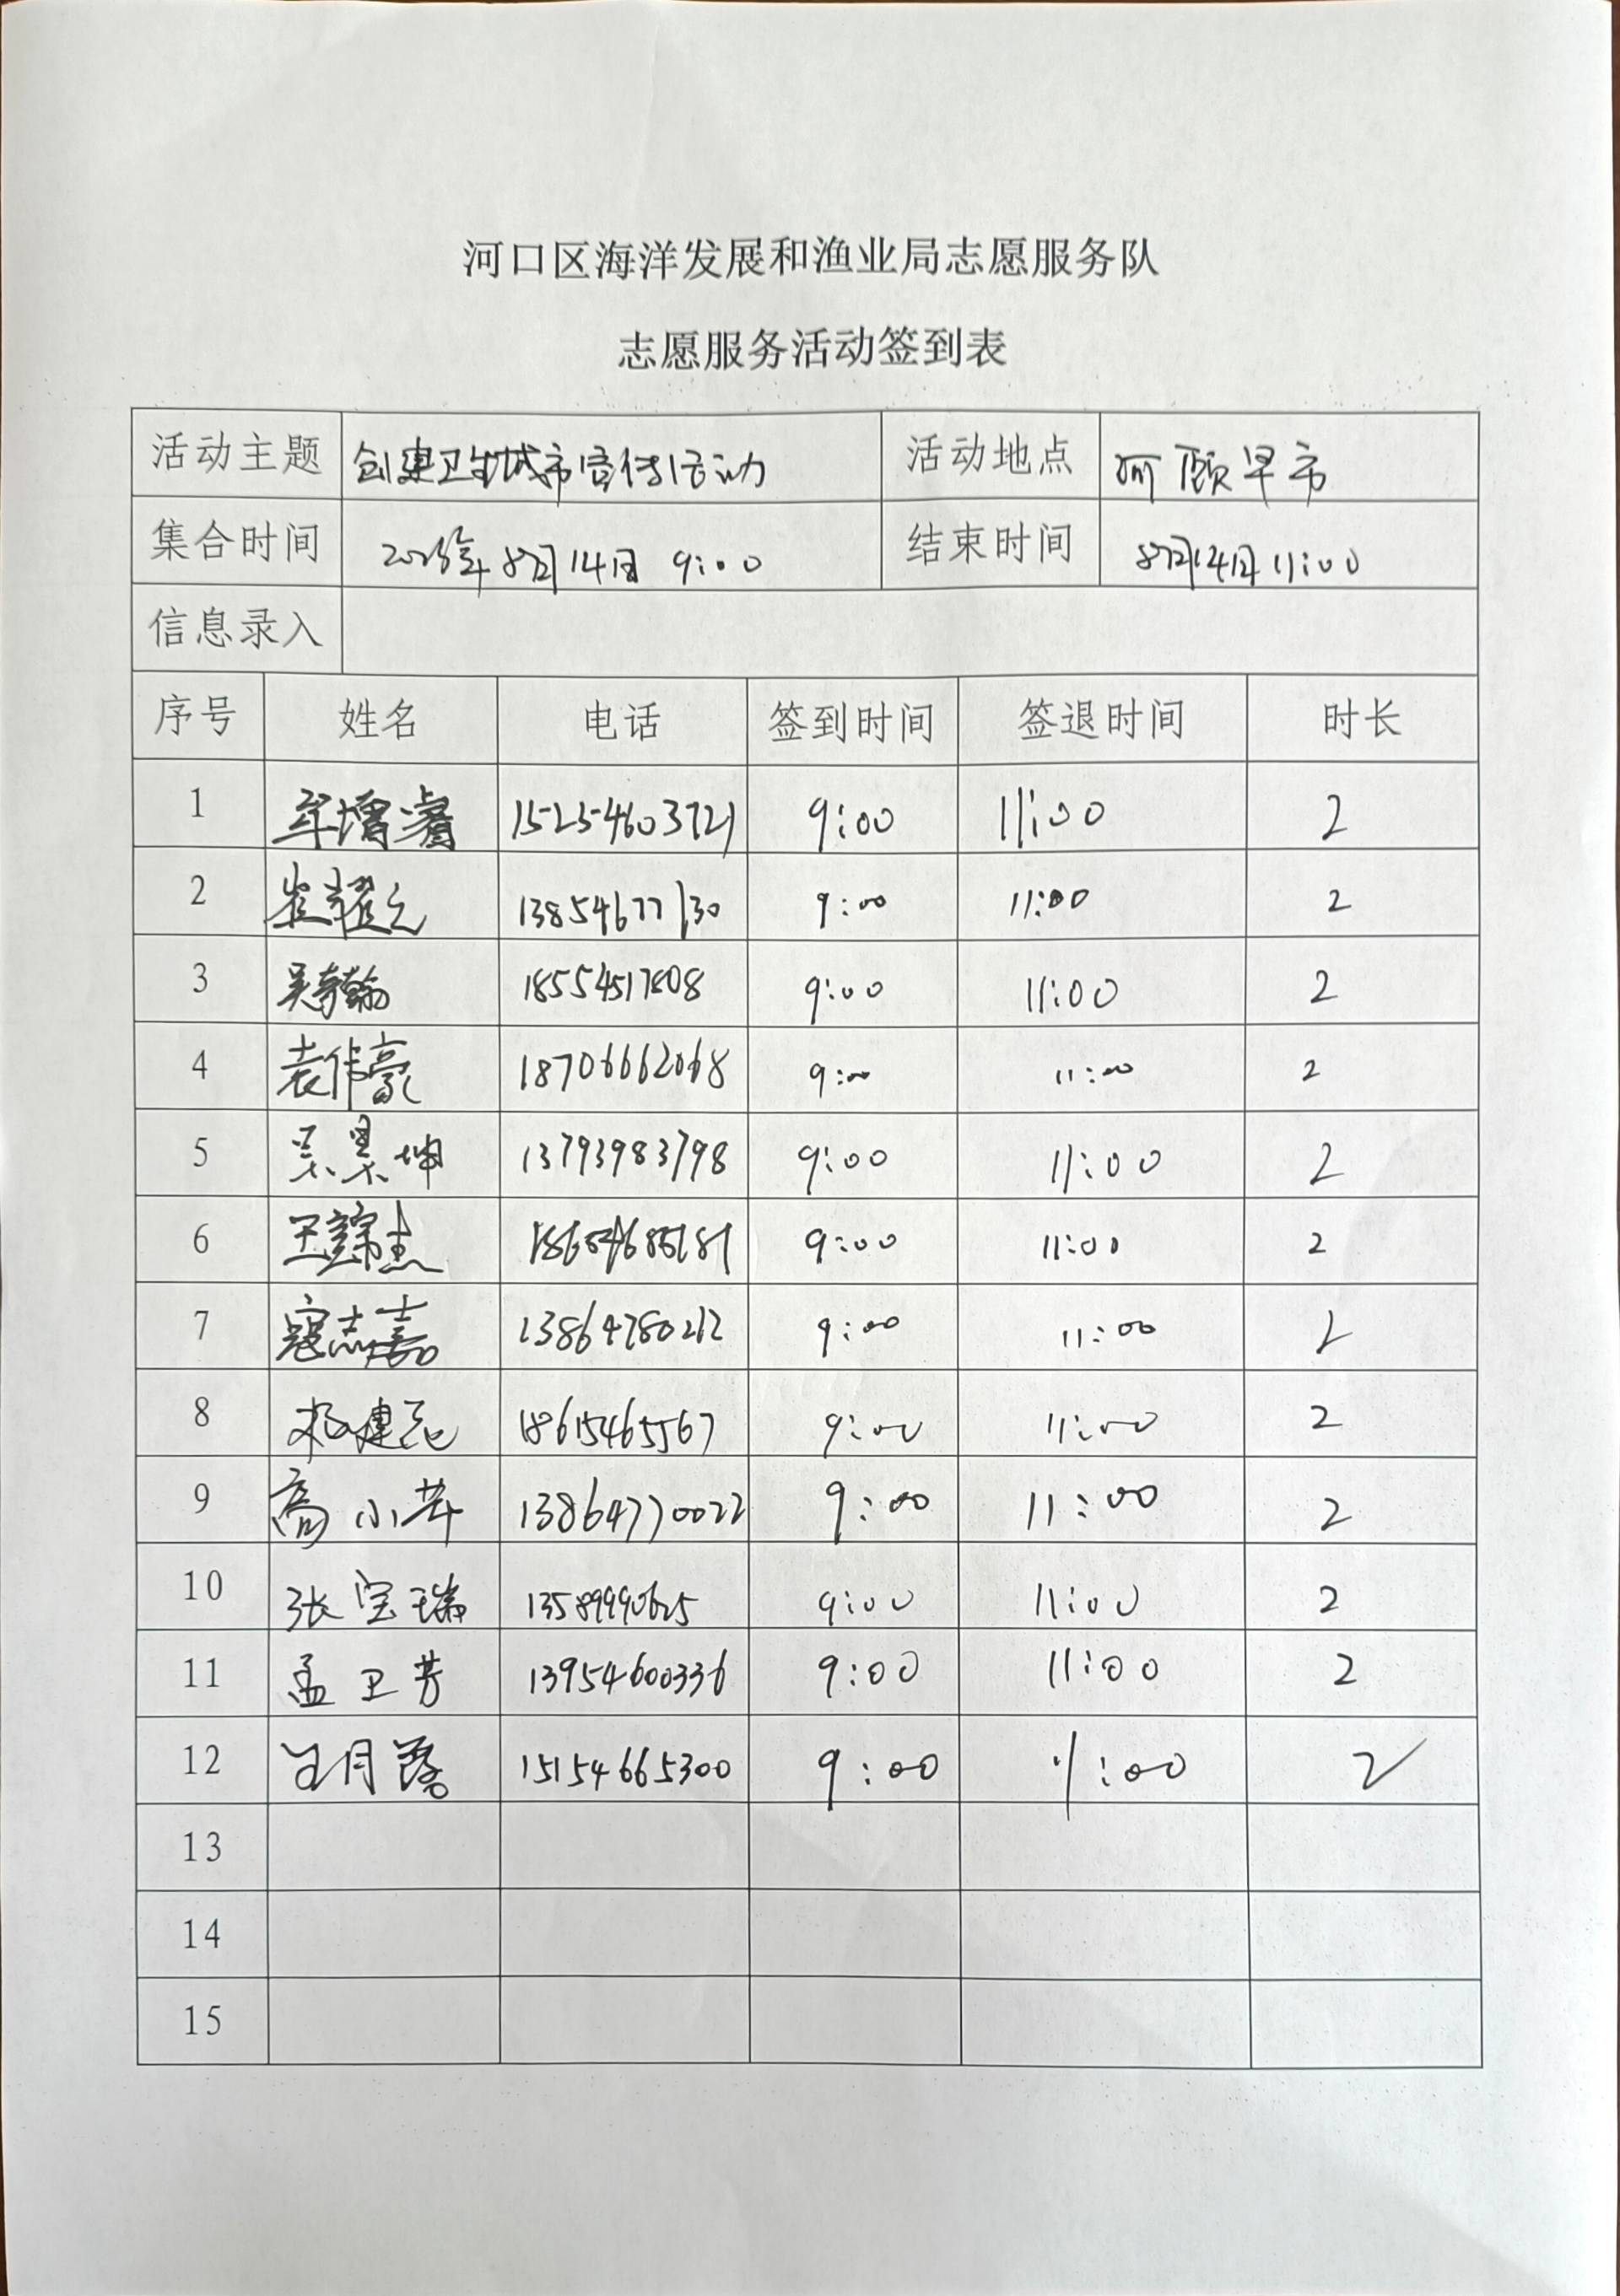 河口区海洋发展和渔业局志愿服务队
志愿服务活动签到表
活动主题 创建卫生城市宣传活动 活动地点 河颐早市
集合时间 8月14日 9:00 结束时间 8月14日 11:00
信息录入
序号 姓名 电话 签到时间 签退时间 时长
1 15254603721 9:00 11:00 2
2 13854677130 9:00 11:00 2
3 18554517808 9:00 11:00 2
4 袁伟豪 18706662068 9:00 11:00 2
5 13793983798 9:00 11:00 2
6 9:00 11:00 2
7 寇志嘉 13864780212 9:00 11:00 2
8 18615465567 9:00 11:00 2
9 高小芹 13864770022 9:00 11:00 2
10 张宝瑞 9:00 11:00 2
11 孟卫芳 13954600336 9:00 11:00 2
12 15154665300 9:00 11:00 2
13
14
15